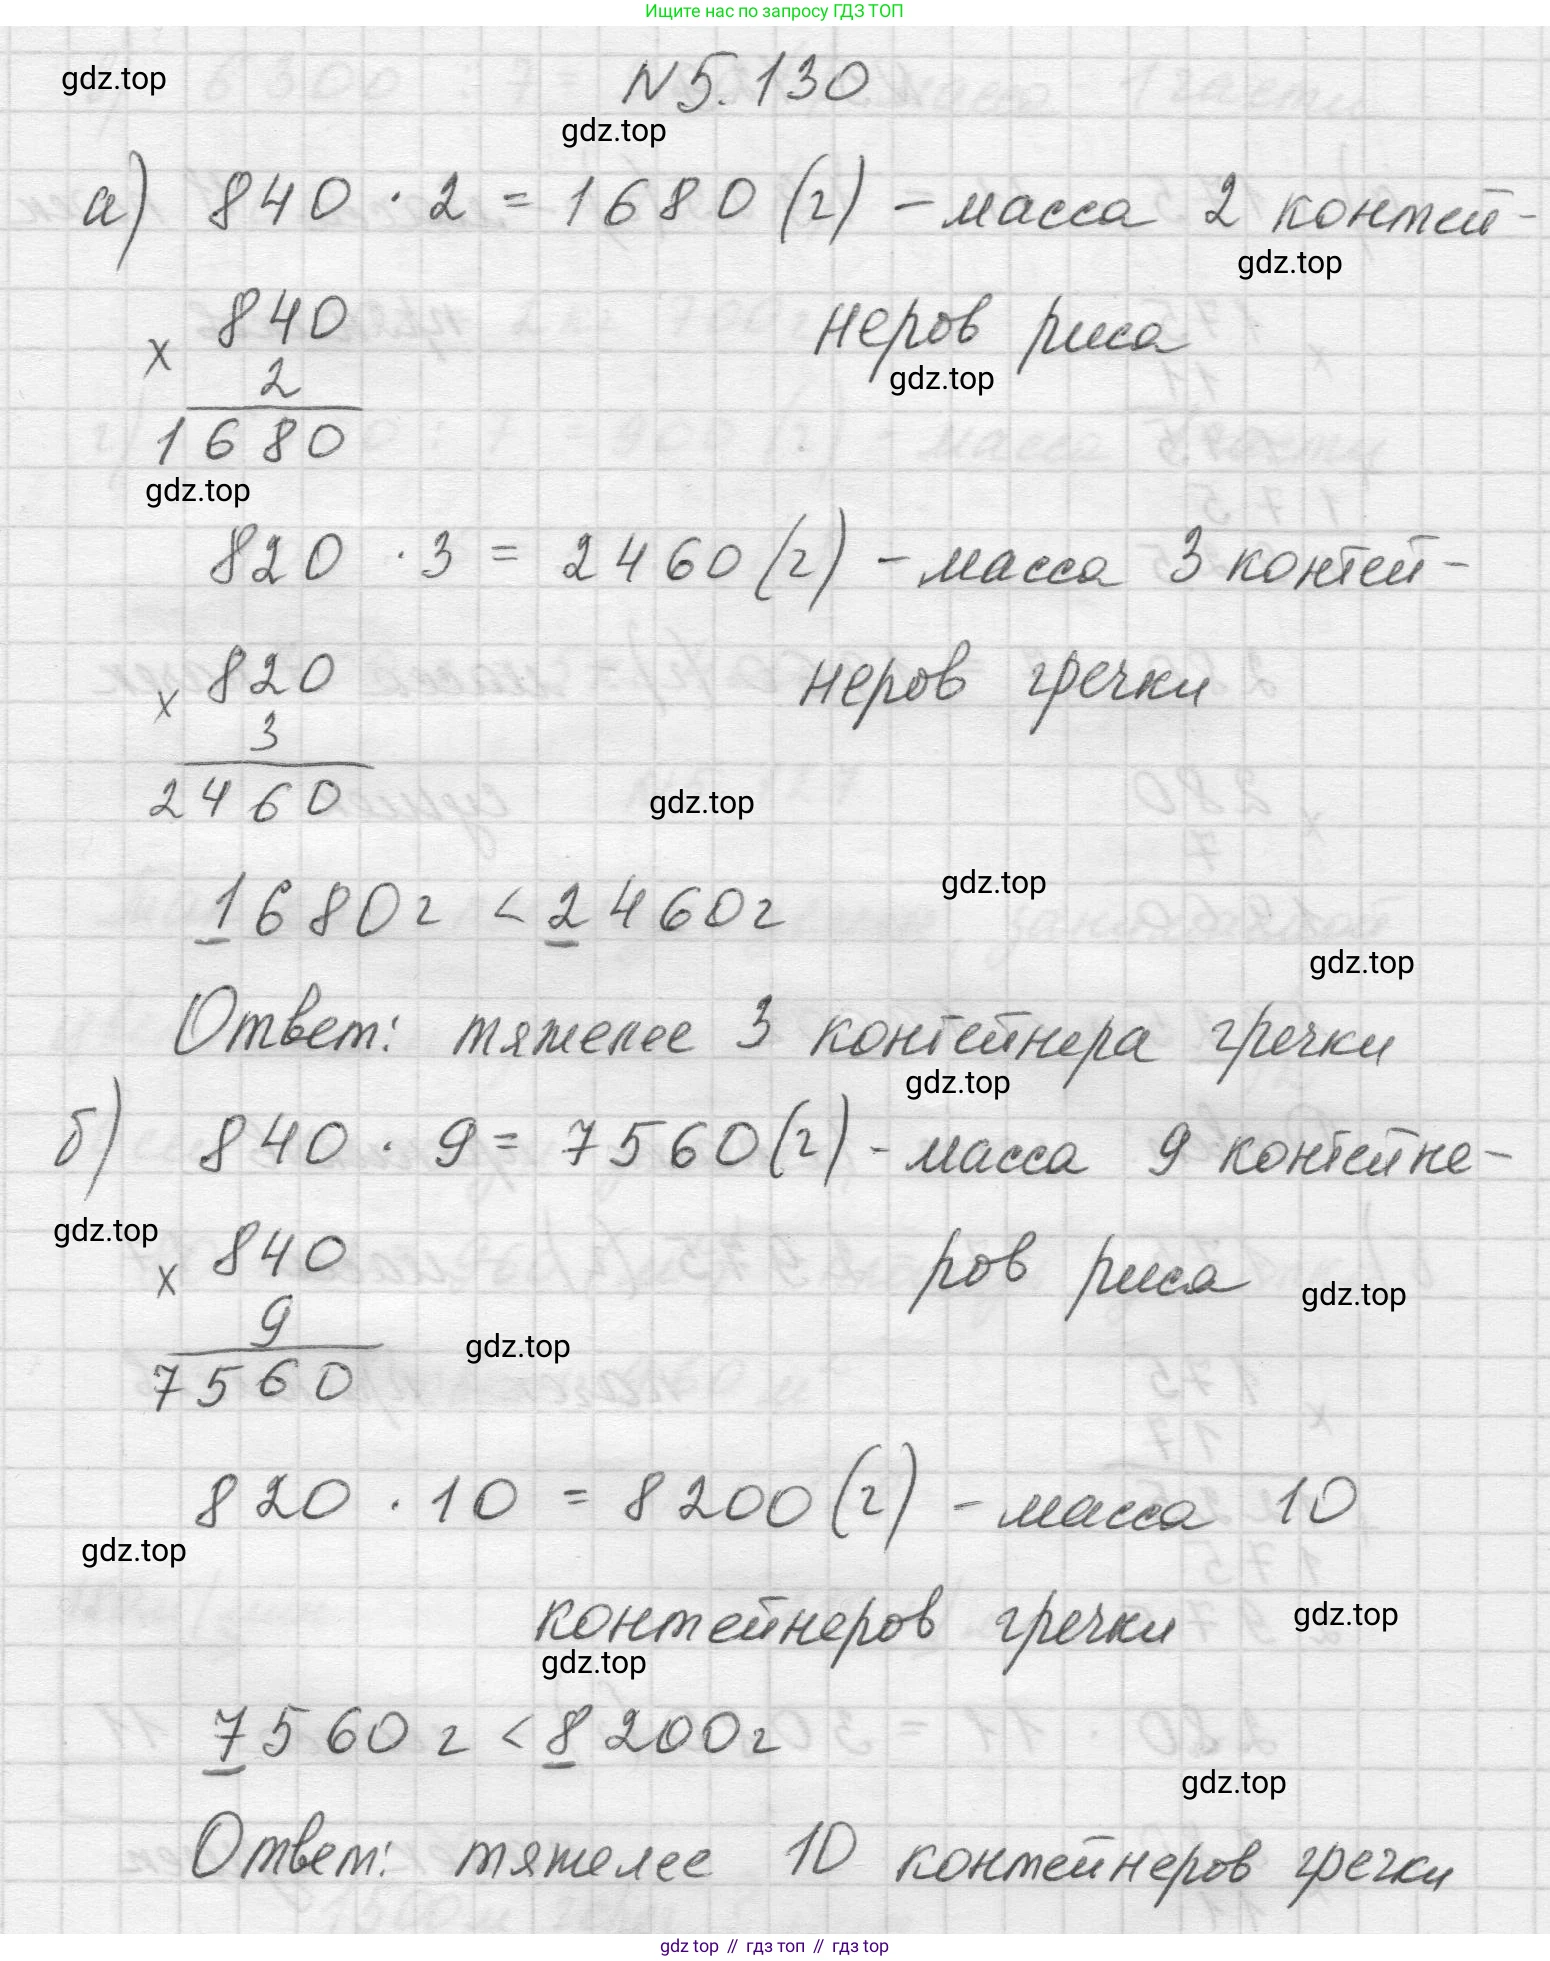 Ищите нас по запросу ГДЗ ТОП
gdz.top
№5.130
gdz.top
а) 840 · 2 = 1680 (г) – масса 2 контей-
gdz.top
840
неров риса
×
2
gdz.top
1680
gdz.top
820 · 3 = 2460 (г) – масса 3 контей-
820
неров гречки
×
3
2460
gdz.top
gdz.top
1680г < 2460г
gdz.top
Ответ: тяжелее 3 контейнера гречки
gdz.top
б) 840 · 9 = 7560 (г) - масса 9 контейне-
gdz.top
840
ров риса
×
gdz.top
9
gdz.top
7560
820 · 10 = 8200 (г) – масса 10
gdz.top
контейнеров гречки
gdz.top
gdz.top
7560 г < 8200г
gdz.top
Ответ: тяжелее 10 контейнеров гречки
gdz top // гдз топ // гдз top